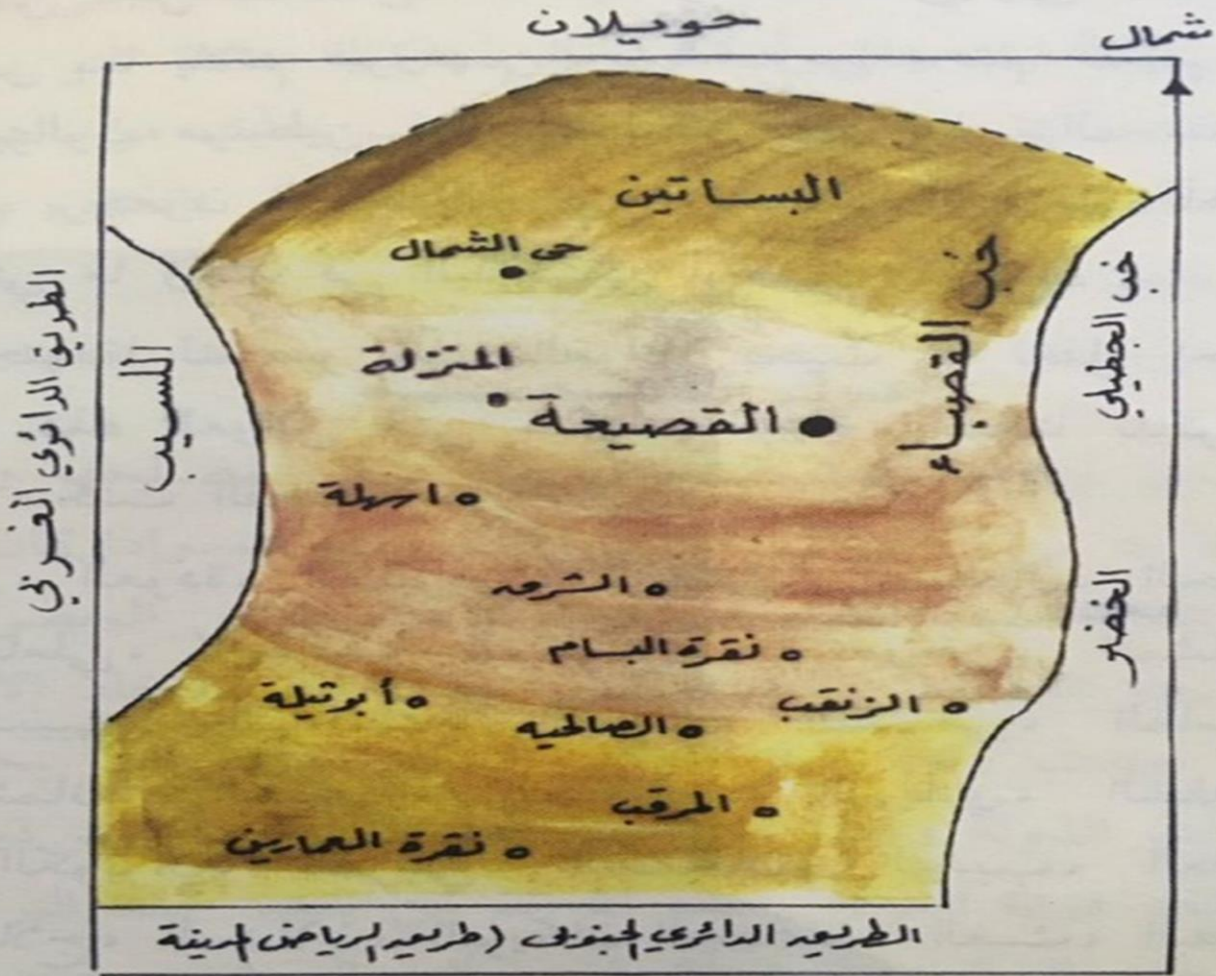 حويلان
شمال
البساتين
حي الشمال
خب القصباء
خب الجطيلي
الطريق الدائري الغربي
اللسيب
المنزلة
القصيعة
اسهلة
الشرمه
نقرة البسام
الخضر
الزنقب
أبوتيلة
الصالحيه
المرقب
نقرة العمارين
الطريق الدائري الجنوبي (طريق الرياض المدينة